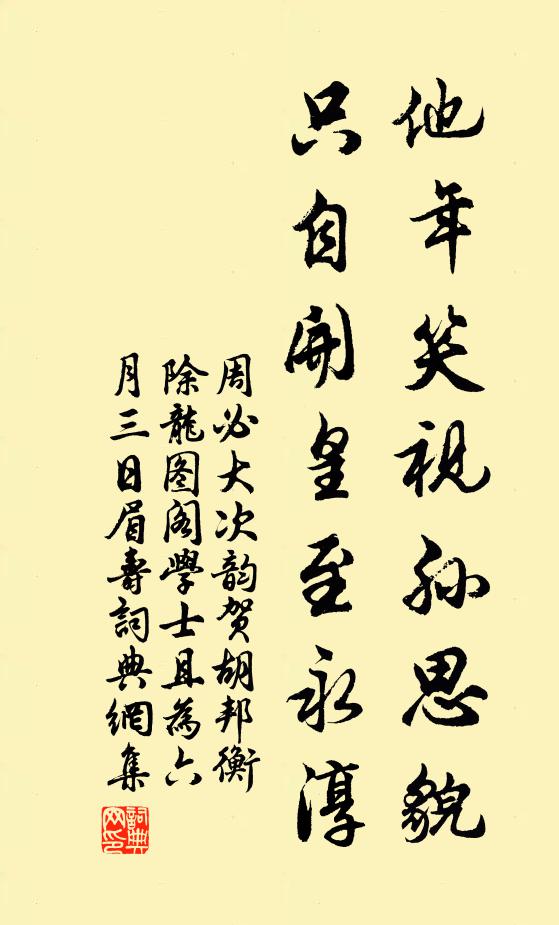 他年笑视孙思貌
只自開皇至永淳
周必大次韵贺胡邦衡
除龍图阁學士且為六
月三日眉壽詞典網集
詞典网印